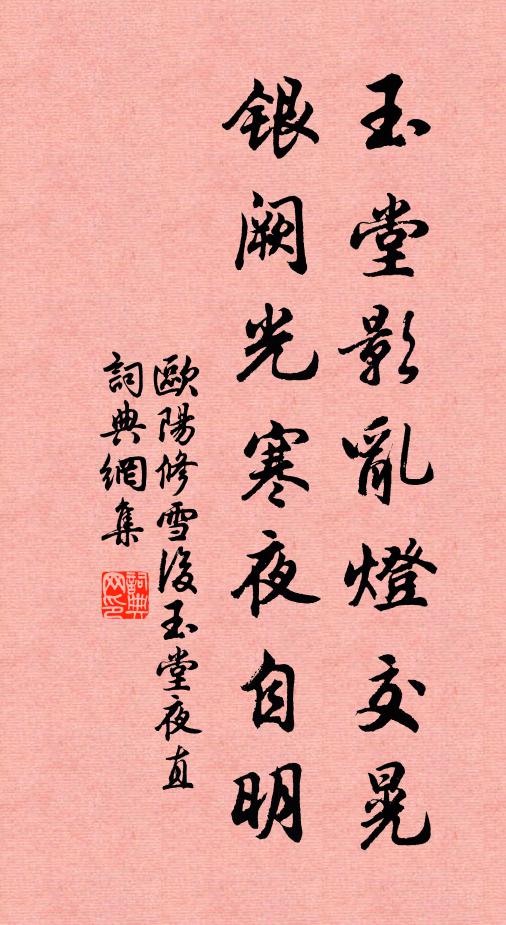 玉堂影亂燈交晃
銀闕光寒夜自明
歐陽修雪後玉堂夜直
詞典網集
詞典网印